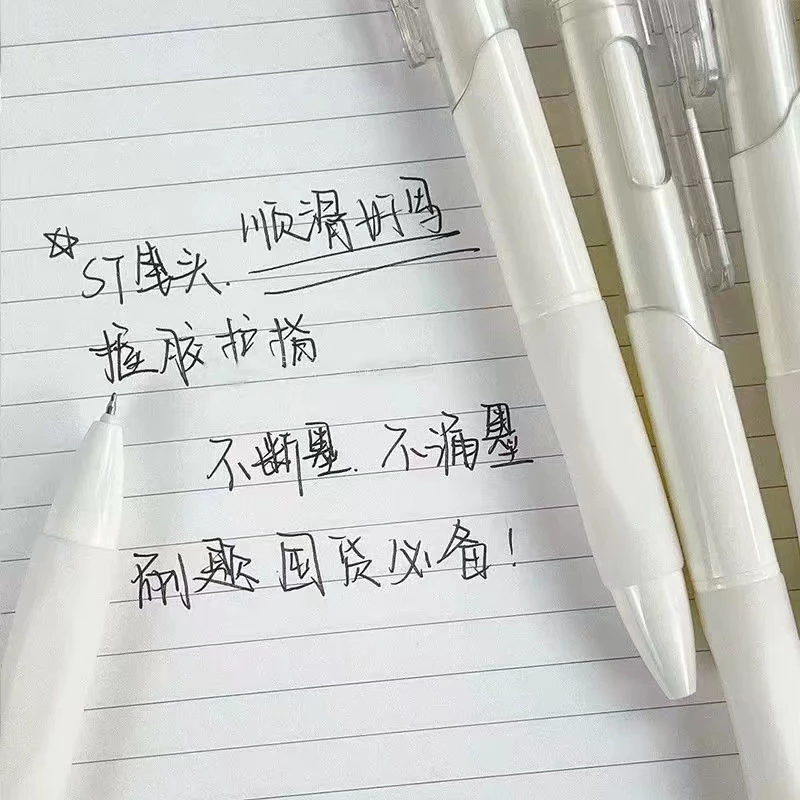 ☆ST笔头. 顺滑好写
握胶拉捨
不断墨. 不漏墨
刷题囤货必备!